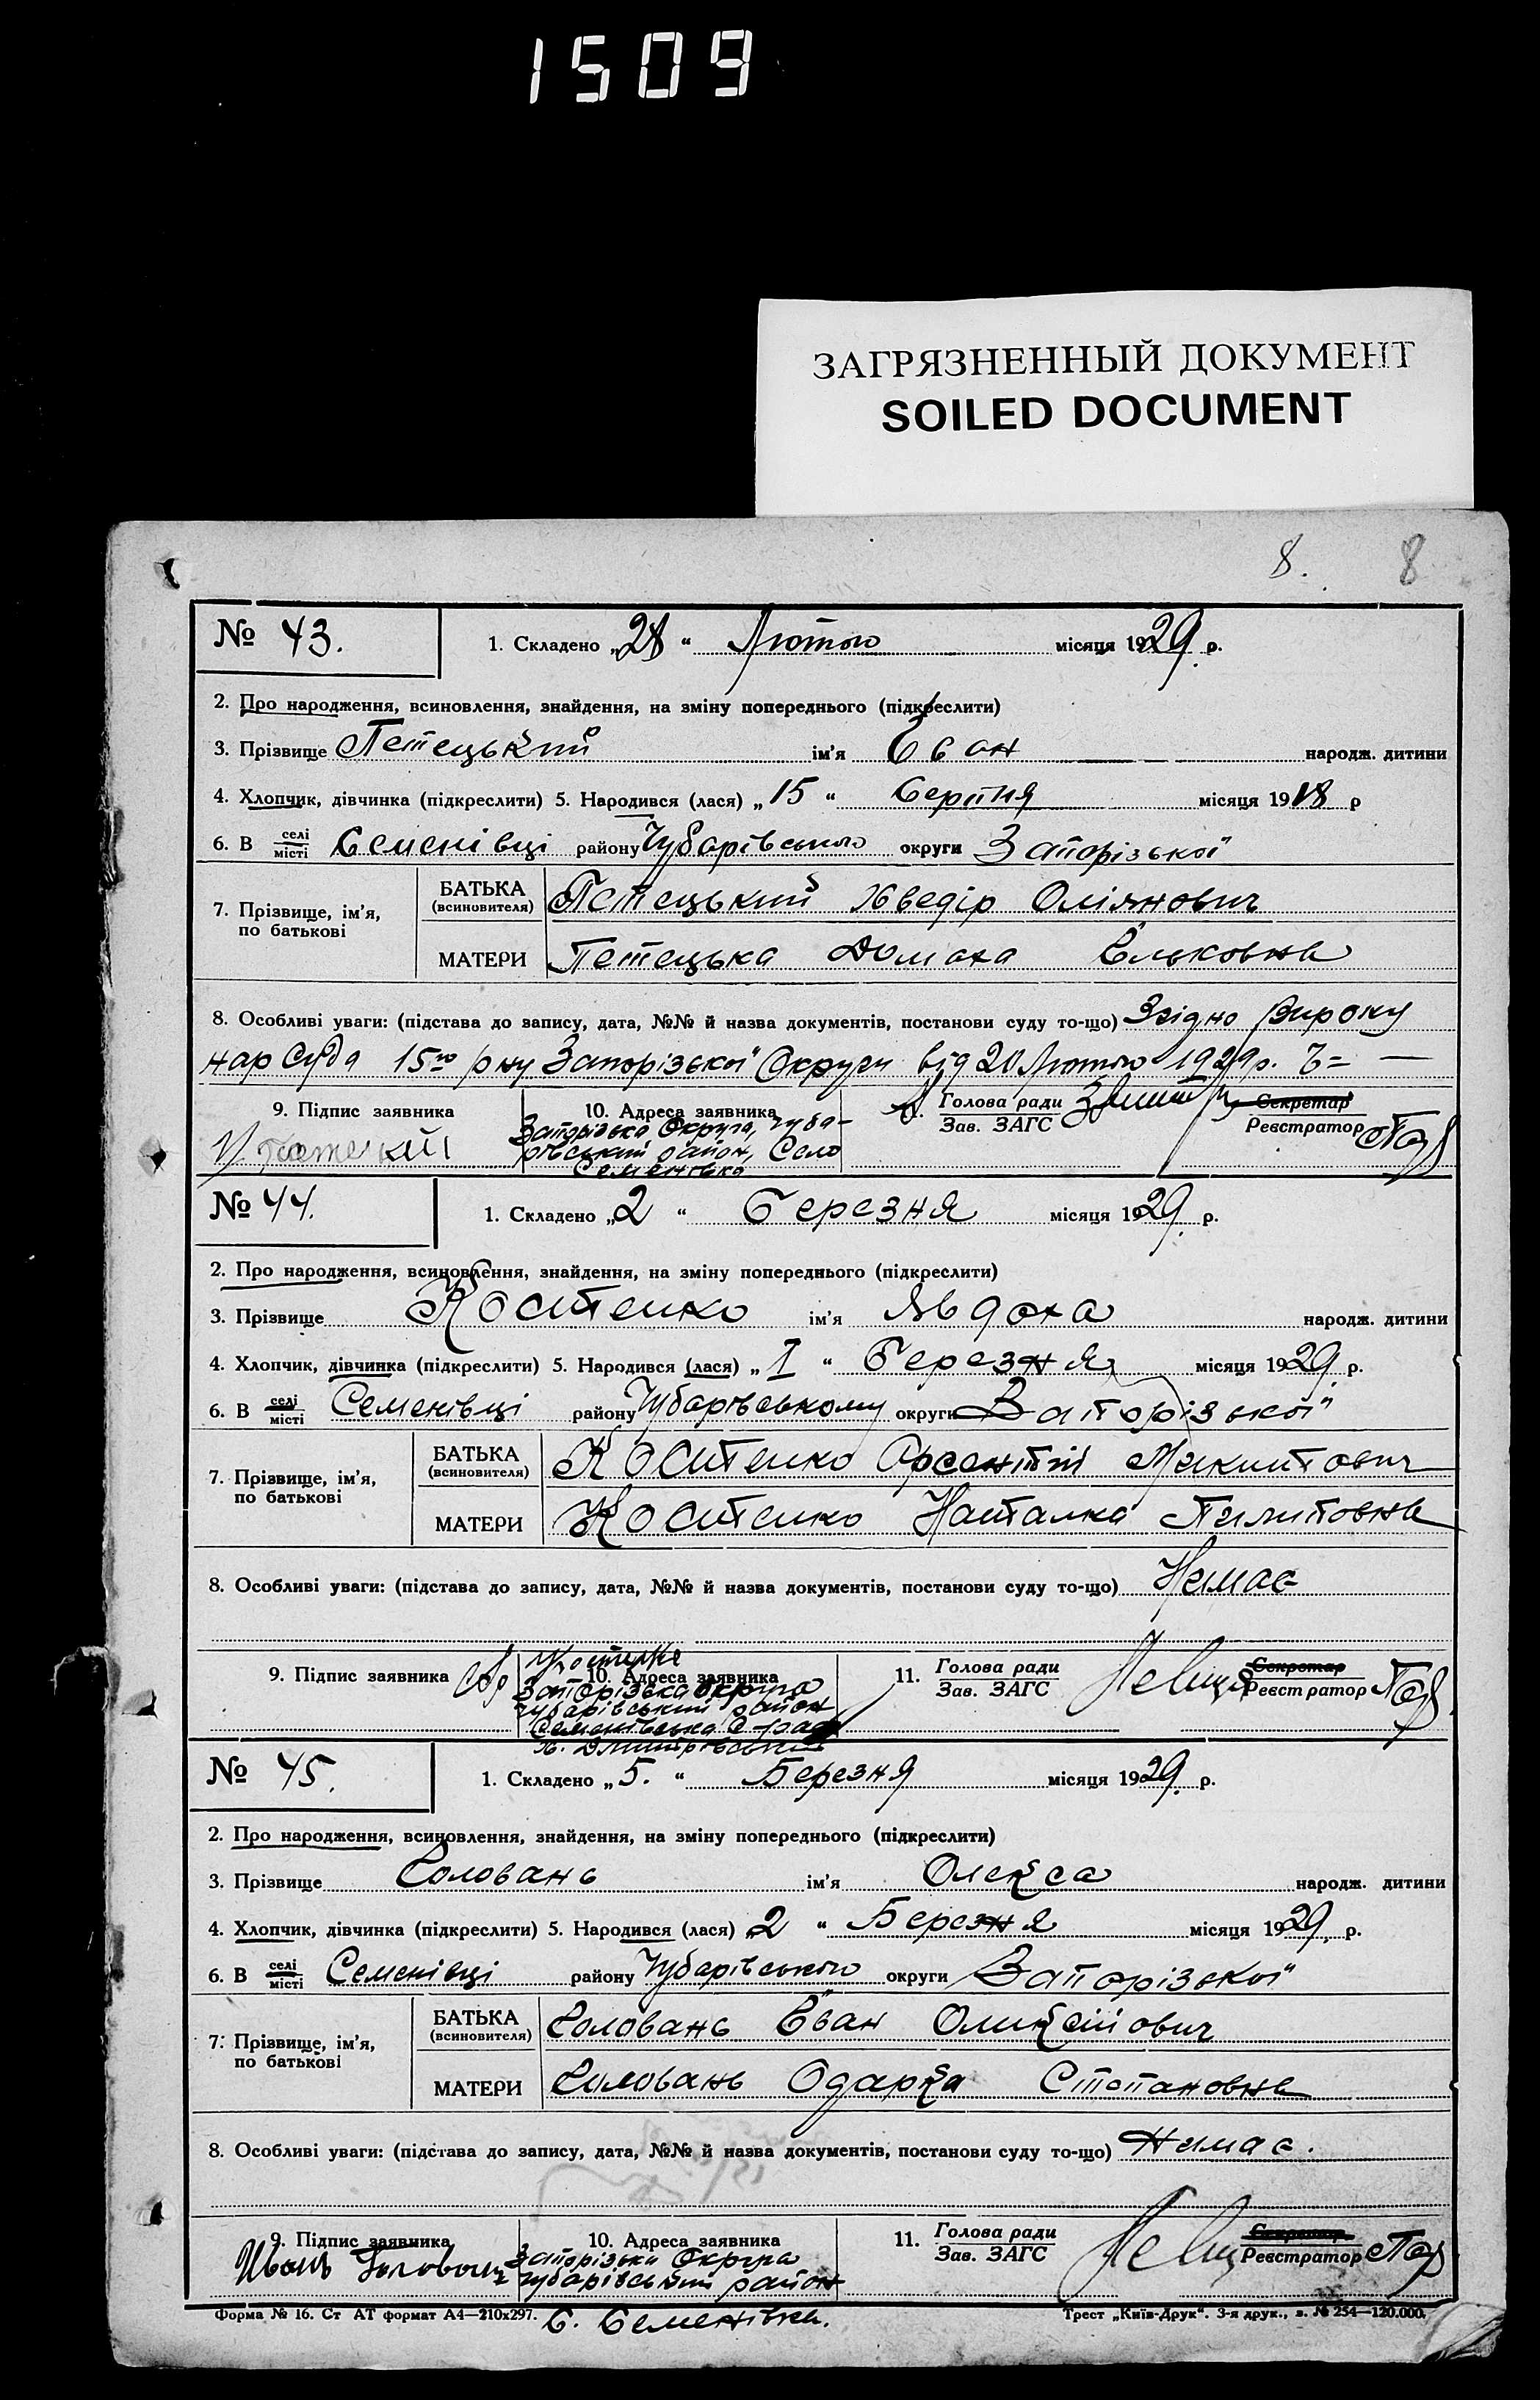 1509
ЗАГРЯЗНЕННЫЙ ДОКУМЕНТ
SOILED DOCUMENT
8. 8
№ 43. 1. Складено „28“ Лютого місяця 1929 р.
2. Про народження, всиновлення, знайдення, на зміну попереднього (підкреслити)
3. Прізвище Петецький ім'я Іван народж. дитини
4. Хлопчик, дівчинка (підкреслити) 5. Народився (лася) „15“ Серпня місяця 1918 р
6. В селі/місті Семенівці району Чубарівського округи Запорізької
7. Прізвище, ім'я, по батькові
БАТЬКА (всиновителя) Петецький Хведір Оліянович
МАТЕРИ Петецька Домаха
8. Особливі уваги: (підстава до запису, дата, №№ й назва документів, постанови суду то-що) Згідно Вироку
нар Суда 15го р-ну Запорізької Округи від 20 Лютого 1929 р.
9. Підпис заявника 10. Адреса заявника 11. Голова ради Секретар
Зав. ЗАГС Реєстратор
Запорізька Округа, Чуба-
рівський район, Село
Семенівка
№ 44. 1. Складено „2“ Березня місяця 1929 р.
2. Про народження, всиновлення, знайдення, на зміну попереднього (підкреслити)
3. Прізвище Костенко ім'я Явдоха народж. дитини
4. Хлопчик, дівчинка (підкреслити) 5. Народився (лася) „I“ Березня місяця 1929 р.
6. В селі/місті Семенівці району Чубарівському округи Запорізької
7. Прізвище, ім'я, по батькові
БАТЬКА (всиновителя) Костенко Арсентій Микитович
МАТЕРИ Костенко Наталка Пилиповна
8. Особливі уваги: (підстава до запису, дата, №№ й назва документів, постанови суду то-що) Немає
9. Підпис заявника Костенко 10. Адреса заявника 11. Голова ради Секретар
Зав. ЗАГС Реєстратор
Запорізька округа
Чубарівський район
Семенівська С-рада
х. Дмитрівський
№ 45. 1. Складено „5.“ Березня місяця 1929 р.
2. Про народження, всиновлення, знайдення, на зміну попереднього (підкреслити)
3. Прізвище Головань ім'я Олекса народж. дитини
4. Хлопчик, дівчинка (підкреслити) 5. Народився (лася) „2“ Березня місяця 1929 р.
6. В селі/місті Семенівці району Чубарівського округи Запорізької
7. Прізвище, ім'я, по батькові
БАТЬКА (всиновителя) Головань Іван Олексійович
МАТЕРИ Головань Одарка Степановна
8. Особливі уваги: (підстава до запису, дата, №№ й назва документів, постанови суду то-що) Немає.
9. Підпис заявника 10. Адреса заявника 11. Голова ради Секретар
Зав. ЗАГС Реєстратор
Иванъ Головань
Запорізька Округа
Чубарівський район
С. Семенівка.
Форма № 16. Ст АТ формат А4—210х297. Трест „Київ-Друк“. 3-я друк., з. № 254—120.000.